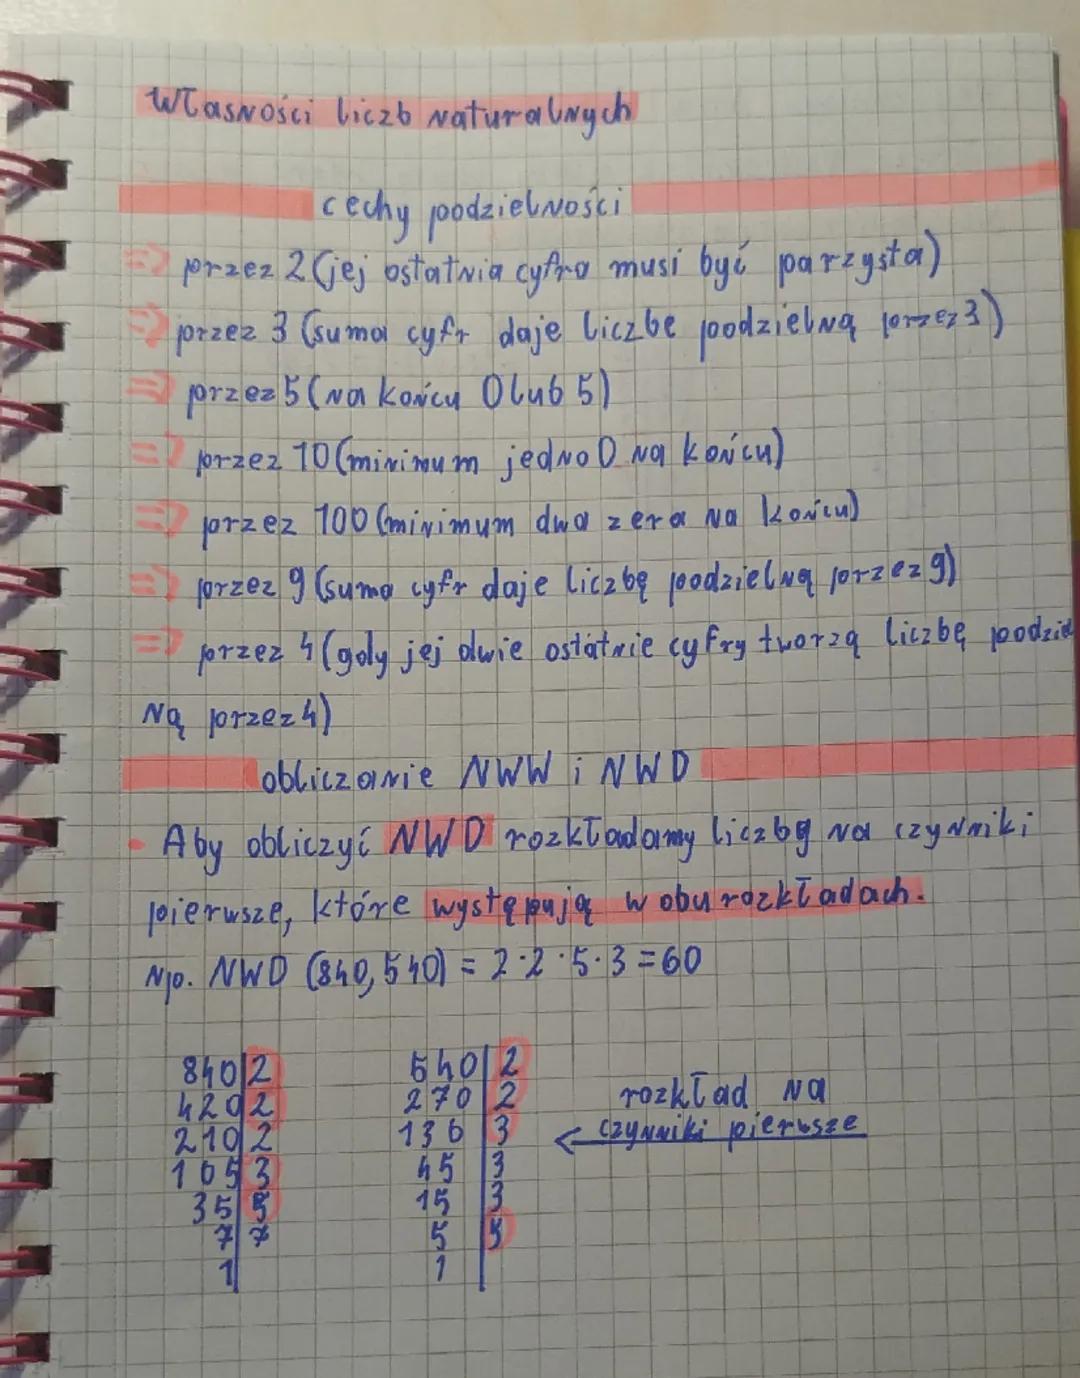 Własności liczb naturalnych
cechy podzielności
=> przez 2 (jej ostatnia cyfra musi być parzysta)
=> przez 3 (suma cyfr daje liczbe podzielną przez 3)
=> przez 5 (na końcu 0 lub 5)
=> przez 10 (minimum jedno 0 na końcu)
=> przez 100 (minimum dwa zera na końcu)
=> przez 9 (suma cyfr daje liczbę podzielną przez 9)
=> przez 4 (gdy jej dwie ostatnie cyfry tworzą liczbę podziel
ną przez 4)
obliczanie NWW i NWD
• Aby obliczyć NWD rozkładamy liczby na czynniki
pierwsze, które występują w obu rozkładach.
Np. NWD (840, 540) = 2·2·5·3 = 60
840|2 540|2
420|2 270|2 rozkład na
210|2 136|3 ← czynniki pierwsze
105|3 45|3
35|5 15|3
7|7 5|5
1| 1|